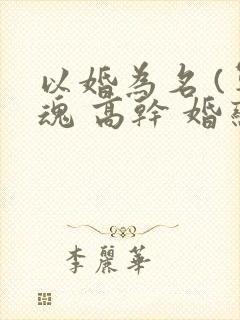 以婚為名(
魂 高幹 婚
李麗華